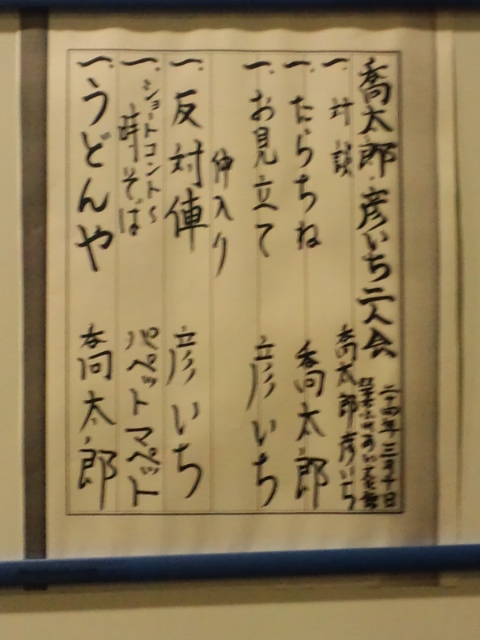 喬太郎・彦いち二人会
二十四年三月十日
一.対談 喬太郎 彦いち
一.たらちね 喬太郎
一.お見立て 彦いち
仲入り
一.反対俥 彦いち
一.ショートコント〜時そば パペットマペット
一.うどんや 喬太郎